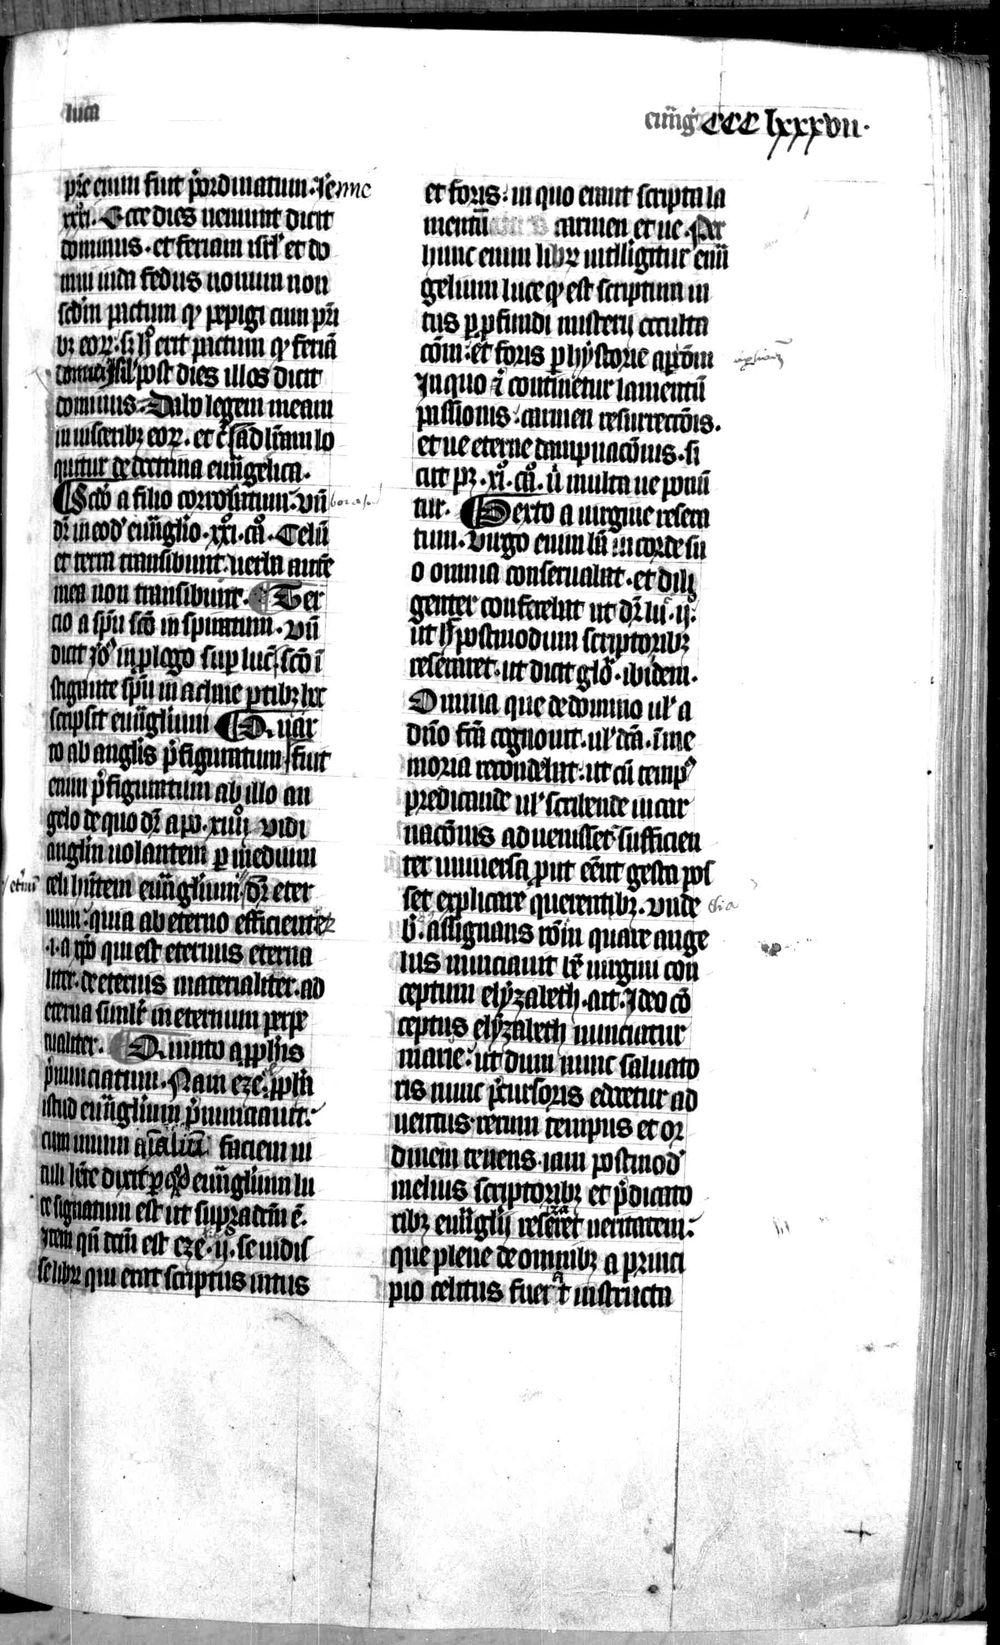 luca
eu̅ng̅ CCC lxxxvii·
pr̅e enim fuit p̅ordinatum·Jerme
xxxi. Ecce dies ueniunt dicit
dominus· et feriam isrl̅ et do
mui iuda fedus nouum non
scd̅m pactum qd̅ pepigi cum pr̅i
bꝫ eoꝝ· sꝫ h̅ erit pactum qd̅ feria̅
domui Isrl̅ post dies illos dicit
dominus· Dabo legem meam
in uisceribꝫ eoꝝ· et c̅ sad lr̅am lo
quitur de doctrina eua̅gelica·
Scd̅o a filio corroboratum· vn̅
dr̅ in eod̅ eua̅glio· xxi· ca̅· Celu̅
et terra transibunt· uerba aute̅
mea non transibunt· Ter
cio a spu̅ sco̅ inspiratum· vn̅
dicit Jo̅ in plogo sup luc̅· sco̅ i̅
stigante spu̅ in achaie ptibꝫ hoc
scripsit eua̅glium Quar
to ab angl̅is p̅figuratum fuit
enim p̅figuratum ab illo an
gelo de quo dr̅ apo· xiiii̊ vidi
angl̅m uolantem p medium
celi hn̅tem eua̅glium dr̅ eter
num· quia ab eterno efficienter
·i· a xp̅o qui est eternus eterna
liter· de eternis materialiter· ad
eterna simlr̅ in eternum perpe
tualiter· Quinto a pph̅is
p̅nunciatum· Nam eze̅· pph̅a
istud eua̅glium p̅nunciauit·
cum unum a̅i̅aliu̅ faciem ui
tuli he̅re dixit p qd̅ eua̅glium lu
ce signatum est ut supradcm̅ e̅·
Item qn̅ dcm̅ est eze· ij̊· se uidis
se libꝝ qui erat scriptus intus
et foris· in quo erant scripta la
menta̅ carmen et ue· Per
hunc enim libꝝ intelligitur eua̅
gelium luce qd̅ est scriptum in
tus p pfundi misterij occulta
co̅m· et foris p hystorie apco̅m
In quo ẜ continetur lamentu̅
passionis· carmen resurrecco̅is·
et ue eterne dampnaco̅nis· si
cut pꝫ· xi̊· ca̅· ubi multa ue ponu̅
tur· Sexto a uirgine resera
tum· Uirgo enim hu̅ in corde su
o omnia conseruabat· et dili
genter conferebat ut dr̅ lu· ij·
ut h̅ postmodum scriptoribꝫ
reseraret· ut dicit glo̅· ibidem·
Omnia que de domino ul̅ a
dn̅o fca̅ cognouit· ul̅ dca̅· i̅ me
moria recondebat· ut cu̅ tempꝰ
predicande ul̅ scribende incar
naco̅nis aduenisset· sufficien
ter uniuersa put e̅ent gesta pos
set explicare querentibꝫ· vnde
b̅· assignans co̅m quare ange
lus nunciauit be̅ uirgini con
ceptum elyzabeth· ait· Ideo co̅
ceptus elyzabeth nunciatur
marie· ut dum nunc saluato
ris nunc p̅cursoris edocetur ad
uentus· rerum tempus et or
dinem tenens· iam postmod̅
melius scriptoribꝫ et p̅dicato
ribꝫ eua̅glij reseret ueritatem·
que plene de omnibꝫ a princi
pio celitus fuerat instructa